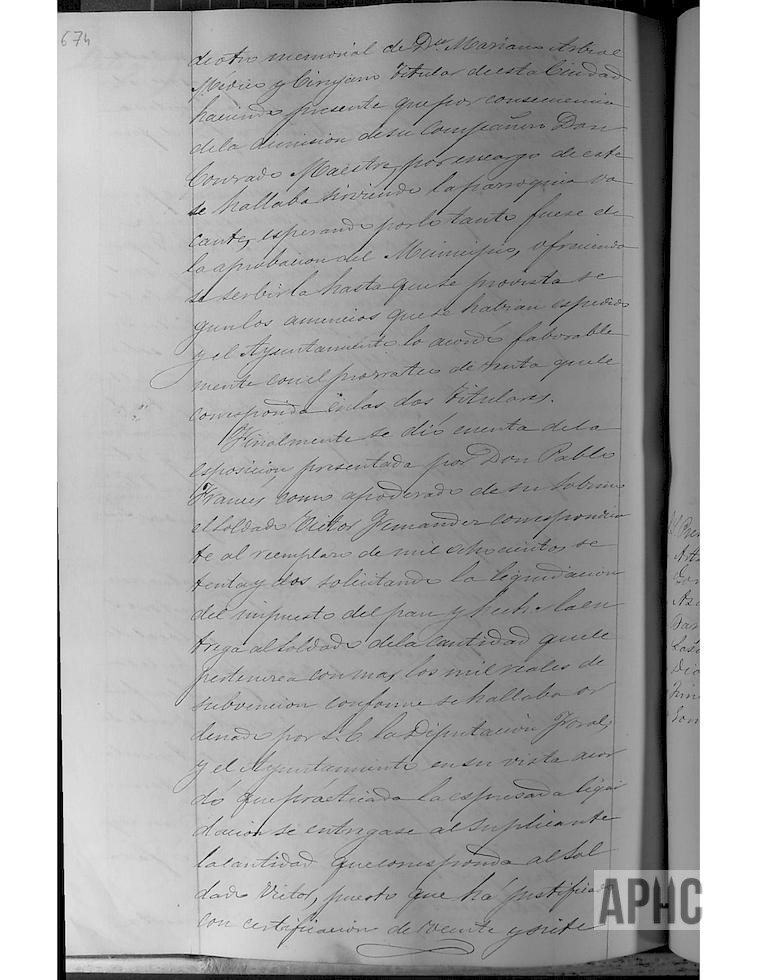 674
de otro memorial de Dn Mariano Arbiol
Médico y Cirujano titular de esta Ciudad
haciendo presente que por consecuencia
de la dimision de su Compañero Don
Conrado Maestre, por encargo de este
se hallaba sirviendo la parroquia va
cante, esperando por lo tanto fuese de
la aprobacion del Municipio, ofreciendo
se serbirla hasta que se provista se
gun los anuncios que se habian espedido
y el Ayuntamiento lo acordó faborable
mente con el prorrateo de renta que le
corresponda en las dos titulares.
Finalmente se dió cuenta de la
esposicion presentada por Don Pablo
como apoderado de su sobrino
el soldado Victor Fernandez correspondien
te al reemplazo de mil ochocientos se
tenta y dos solicitando la liquidacion
del impuesto del pan y hecha la en
trega al soldado de la cantidad que le
pertenezca con mas los mil reales de
subvencion conforme se hallaba or
denado por S.E. la Diputacion Foral;
y el Ayuntamiento en su vista acor
dó que practicada la espresada liqui
dacion se entregase al suplicante
la cantidad que corresponda al sol
dado Victor, puesto que ha justificado
con certificacion de veinte y siete
APHC